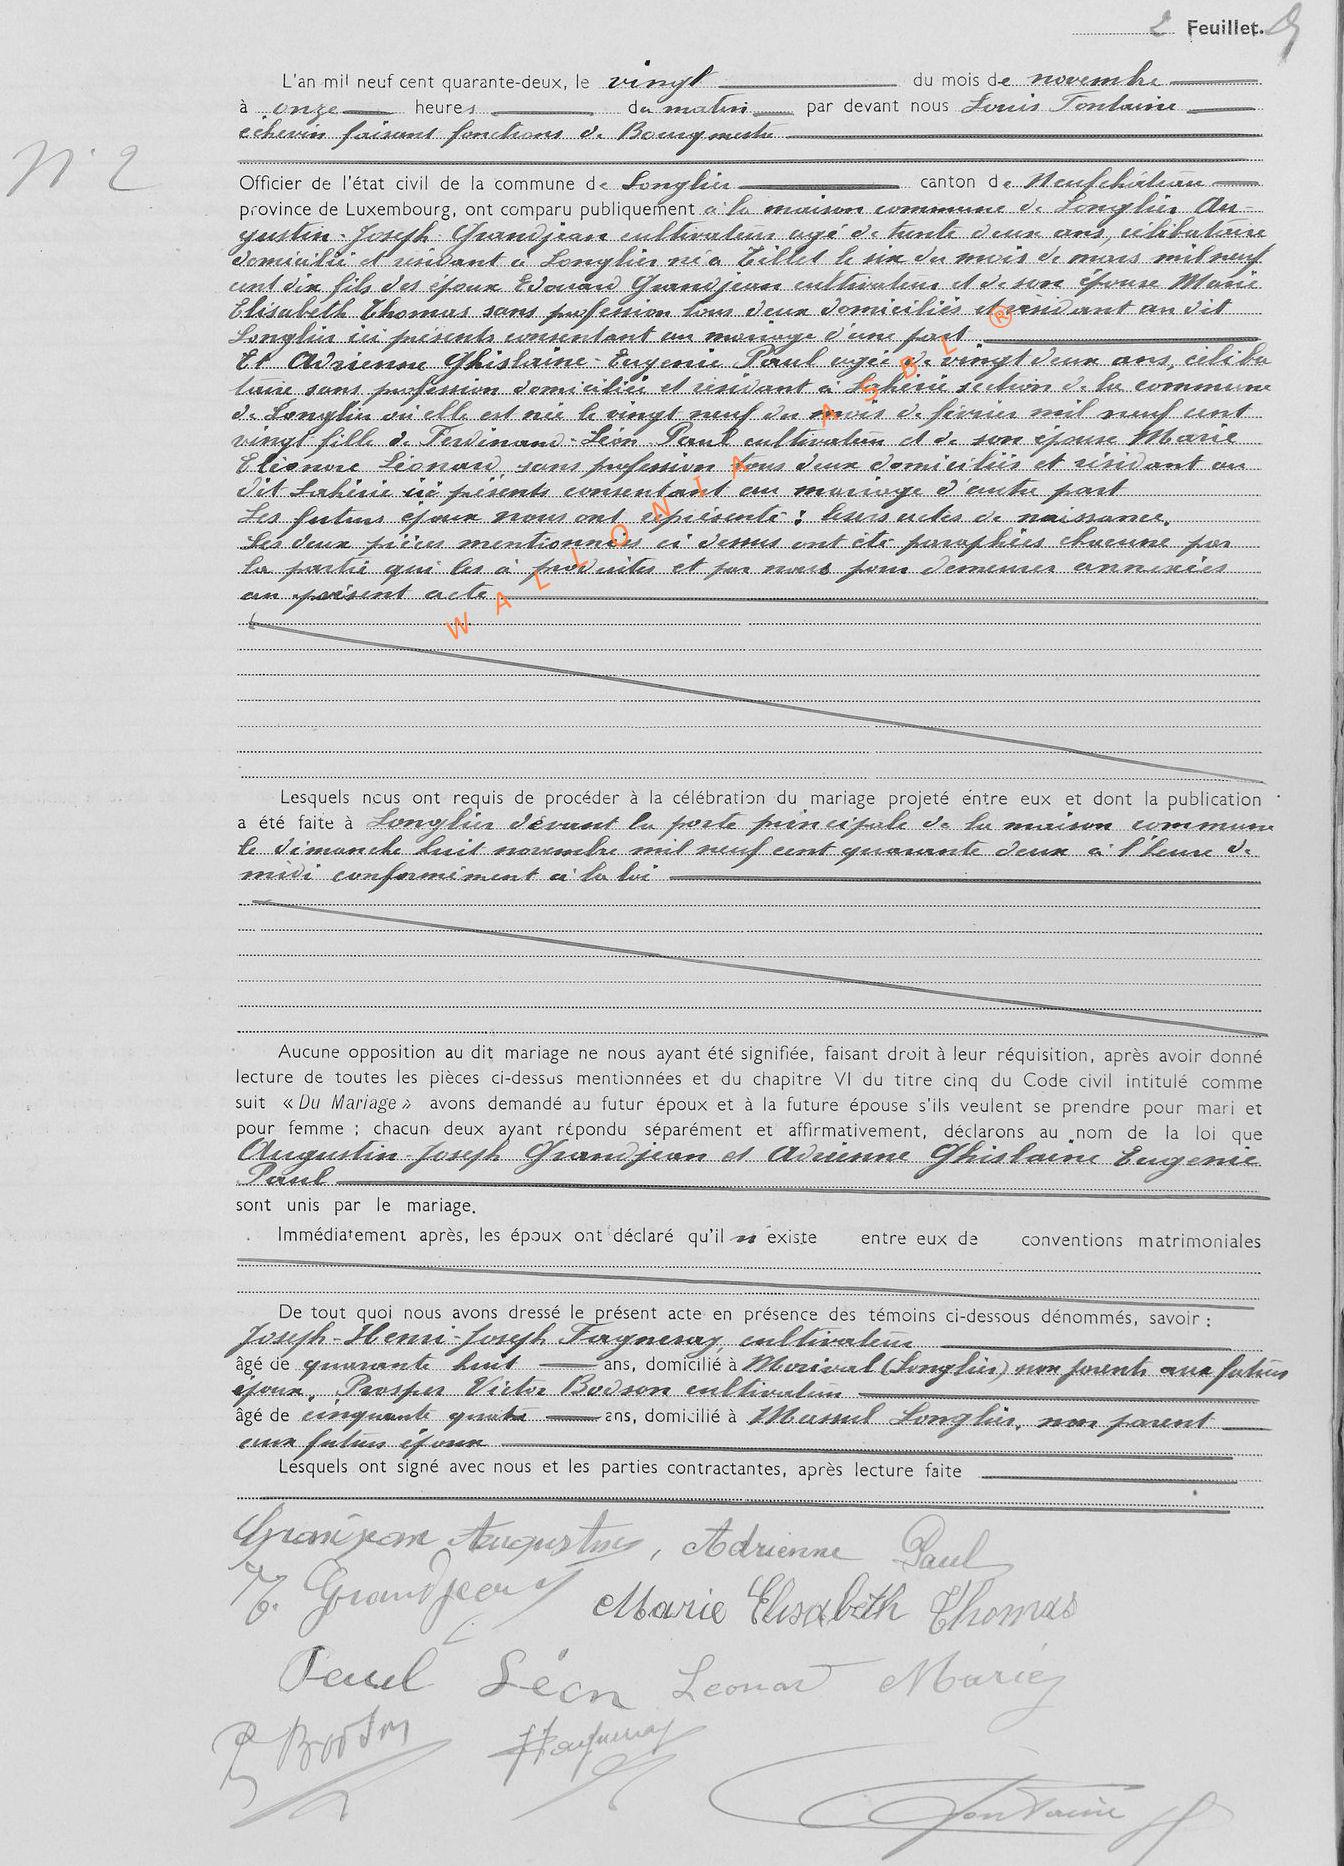 2 Feuillet.
L'an mil neuf cent quarante-deux, le vingt du mois de novembre
à onze heures du matin par devant nous Louis Fontaine
échevin faisant fonctions de Bourgmestre
N° 2
Officier de l'état civil de la commune de Longlier canton de Neufchâteau
province de Luxembourg, ont comparu publiquement à la maison commune de Longlier Au-
gustin-Joseph Grandjean cultivateur agé de trente deux ans, célibataire
domicilié et residant à Longlier né à Tillet le six du mois de mars mil neuf
cent dix fils des époux Edouard Grandjean cultivateur et de son épouse Marie
Elisabeth Thomas sans profession tous deux domiciliés et résidant au dit
Longlier ici présents consentant au mariage d'une part
Et Adrienne Ghislaine-Eugenie Paul agée de vingt deux ans, céliba
taire sans profession domiciliée et résidant à Lahérie section de la commune
de Longlier où elle est née le vingt neuf du mois de février mil neuf cent
vingt fille de Ferdinand-Léon Paul cultivateur et de son épouse Marie
Eléonore Léonard sans profession tous deux domiciliés et résidant au
dit Lahérie ici présents consentant au mariage d'autre part
Les futurs époux nous ont représenté : leurs actes de naissance.
Les deux pièces mentionnées ci dessus ont été paraphées chacune par
la partie qui les à produites et par nous pour demeurer annexées
au présent acte
WALLONIA ASBL ®
Lesquels nous ont requis de procéder à la célébration du mariage projeté entre eux et dont la publication
a été faite à Longlier devant la porte principale de la maison commune
le dimanche huit novembre mil neuf cent quarante deux à l'heure de
midi conformément à la loi
Aucune opposition au dit mariage ne nous ayant été signifiée, faisant droit à leur réquisition, après avoir donné
lecture de toutes les pièces ci-dessus mentionnées et du chapitre VI du titre cinq du Code civil intitulé comme
suit « Du Mariage » avons demandé au futur époux et à la future épouse s'ils veulent se prendre pour mari et
pour femme ; chacun deux ayant répondu séparément et affirmativement, déclarons au nom de la loi que
Augustin-Joseph Grandjean et Adrienne Ghislaine Eugenie
Paul
sont unis par le mariage.
Immédiatement après, les époux ont déclaré qu'il n'existe entre eux de conventions matrimoniales
De tout quoi nous avons dressé le présent acte en présence des témoins ci-dessous dénommés, savoir :
Joseph-Henri-Joseph Fagneray, cultivateur
âgé de quarante huit ans, domicilié à Morival (Longlier) non parents aux futurs
époux, Prosper Victor Bodson cultivateur
âgé de cinquante quatre ans, domicilié à Massul Longlier, non parent
aux futurs époux
Lesquels ont signé avec nous et les parties contractantes, après lecture faite
Grandjean Augustin, Adrienne Paul
E. Grandjean Marie Elisabeth Thomas
Paul Léon Leonard Marie
P Bodson Fagneray
Fontaine